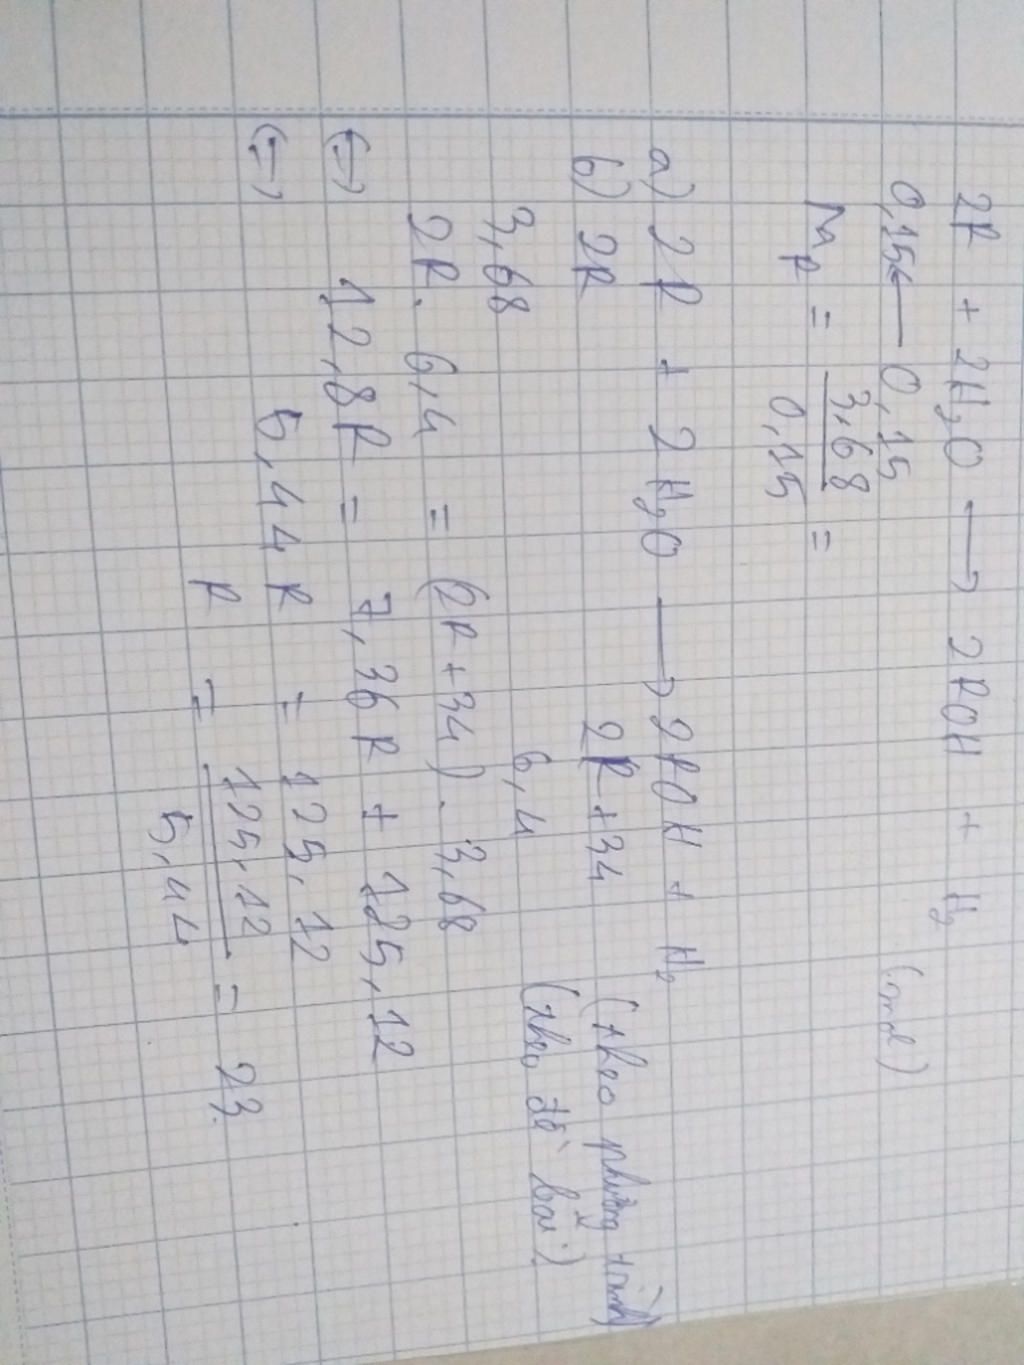 2R + 2H₂O → 2ROH + H₂
0,15 ← 0,15 (mol)
M_R = 3,68/0,15 =
a) 2R + 2H₂O → 2ROH + H₂
b) 2R 2R+34 (theo phương trình)
3,68 6,4 (theo đề bài)
2R . 6,4 = (2R+34) . 3,68
(↔) 12,8R = 7,36R + 125,12
(↔) 5,44R = 125,12
R = 125,12/5,44 = 23